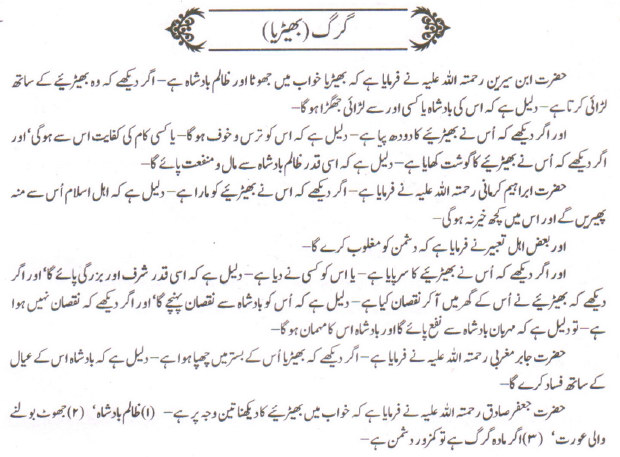 گرگ (بھیڑیا)
حضرت ابن سیرین رحمتہ اللہ علیہ نے فرمایا ہے کہ بھیڑیا خواب میں جھوٹا اور ظالم بادشاہ ہے– اگر دیکھے کہ وہ بھیڑیئے کے ساتھ
لڑائی کرتا ہے– دلیل ہے کہ اس کی بادشاہ یا کسی اور سے لڑائی جھگڑا ہو گا–
اور اگر دیکھے کہ اُس نے بھیڑیئے کا دودھ پیا ہے– دلیل ہے کہ اس کو ترس و خوف ہو گا– یا کسی کام کی کفایت اس سے ہو گی‘ اور
اگر دیکھے کہ اُس نے بھیڑیئے کا گوشت کھایا ہے– دلیل ہے کہ اسی قدر ظالم بادشاہ سے مال و منفعت پائے گا–
حضرت ابراہیم کرمانی رحمتہ اللہ علیہ نے فرمایا ہے– اگر دیکھے کہ اس نے بھیڑیئے کو مارا ہے– دلیل ہے کہ اہل اسلام اُس سے منہ
پھیریں گے اور اس میں کچھ خیر نہ ہو گی–
اور بعض اہل تعبیر نے فرمایا ہے کہ دشمن کو مغلوب کرے گا–
اور اگر دیکھے کہ اُس نے بھیڑیئے کا سر پایا ہے– یا اس کو کسی نے دیا ہے– دلیل ہے کہ اسی قدر شرف اور بزرگی پائے گا‘ اور اگر
دیکھے کہ بھیڑیئے نے اُس کے گھر میں آ کر نقصان کیا ہے– دلیل ہے کہ اُس کو بادشاہ سے نقصان پہنچے گا‘ اور اگر دیکھے کہ نقصان نہیں ہوا
ہے– تو دلیل ہے کہ مہربان بادشاہ سے نفع پائے گا اور بادشاہ اس کا مہمان ہو گا–
حضرت جابر مغربی رحمتہ اللہ علیہ نے فرمایا ہے– اگر دیکھے کہ بھیڑیا اُس کے بستر میں چھپا ہوا ہے– دلیل ہے کہ بادشاہ اس کے عیال
کے ساتھ فساد کرے گا–
حضرت جعفر صادق رحمتہ اللہ علیہ نے فرمایا ہے کہ خواب میں بھیڑیئے کا دیکھنا تین وجہ پر ہے– (۱) ظالم بادشاہ‘ (۲) جھوٹ بولنے
والی عورت‘ (۳) اگر مادہ گرگ ہے تو کمزور دشمن ہے–